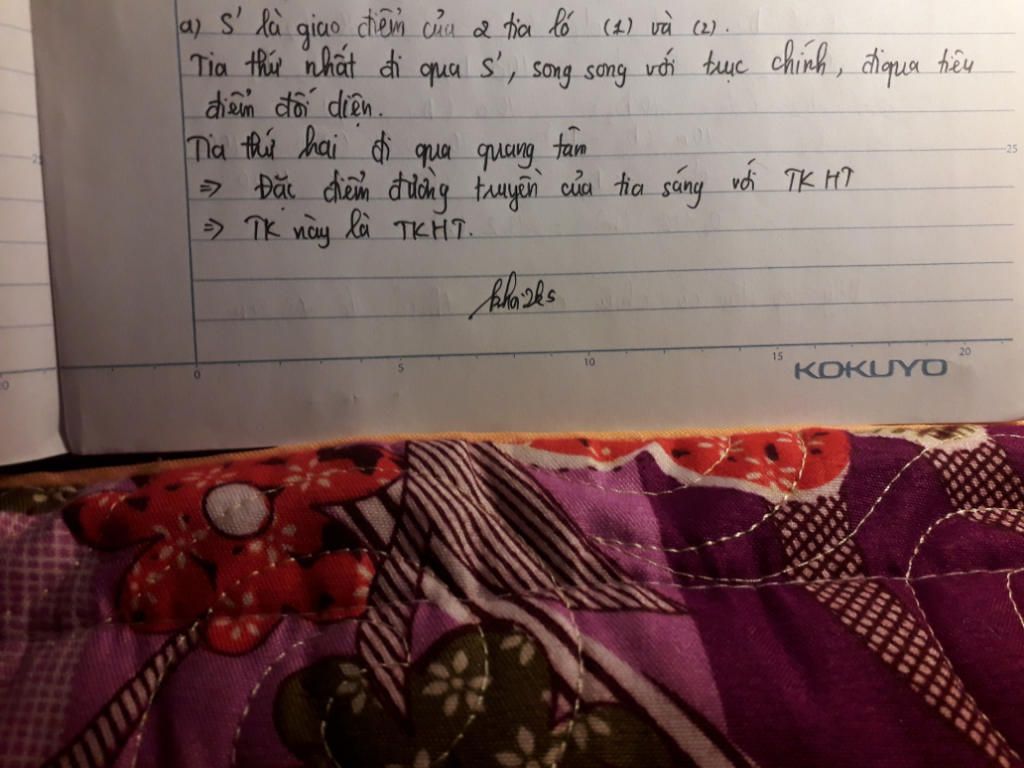 a) S' là giao điểm của 2 tia ló (1) và (2).
Tia thứ nhất đi qua S', song song với trục chính, đi qua tiêu
điểm đối diện.
Tia thứ hai đi qua quang tâm
=> Đặc điểm đường truyền của tia sáng với TKHT
=> TK này là TKHT.
khoi2k5
25
25
0
0 5 10 15 20
KOKUYO